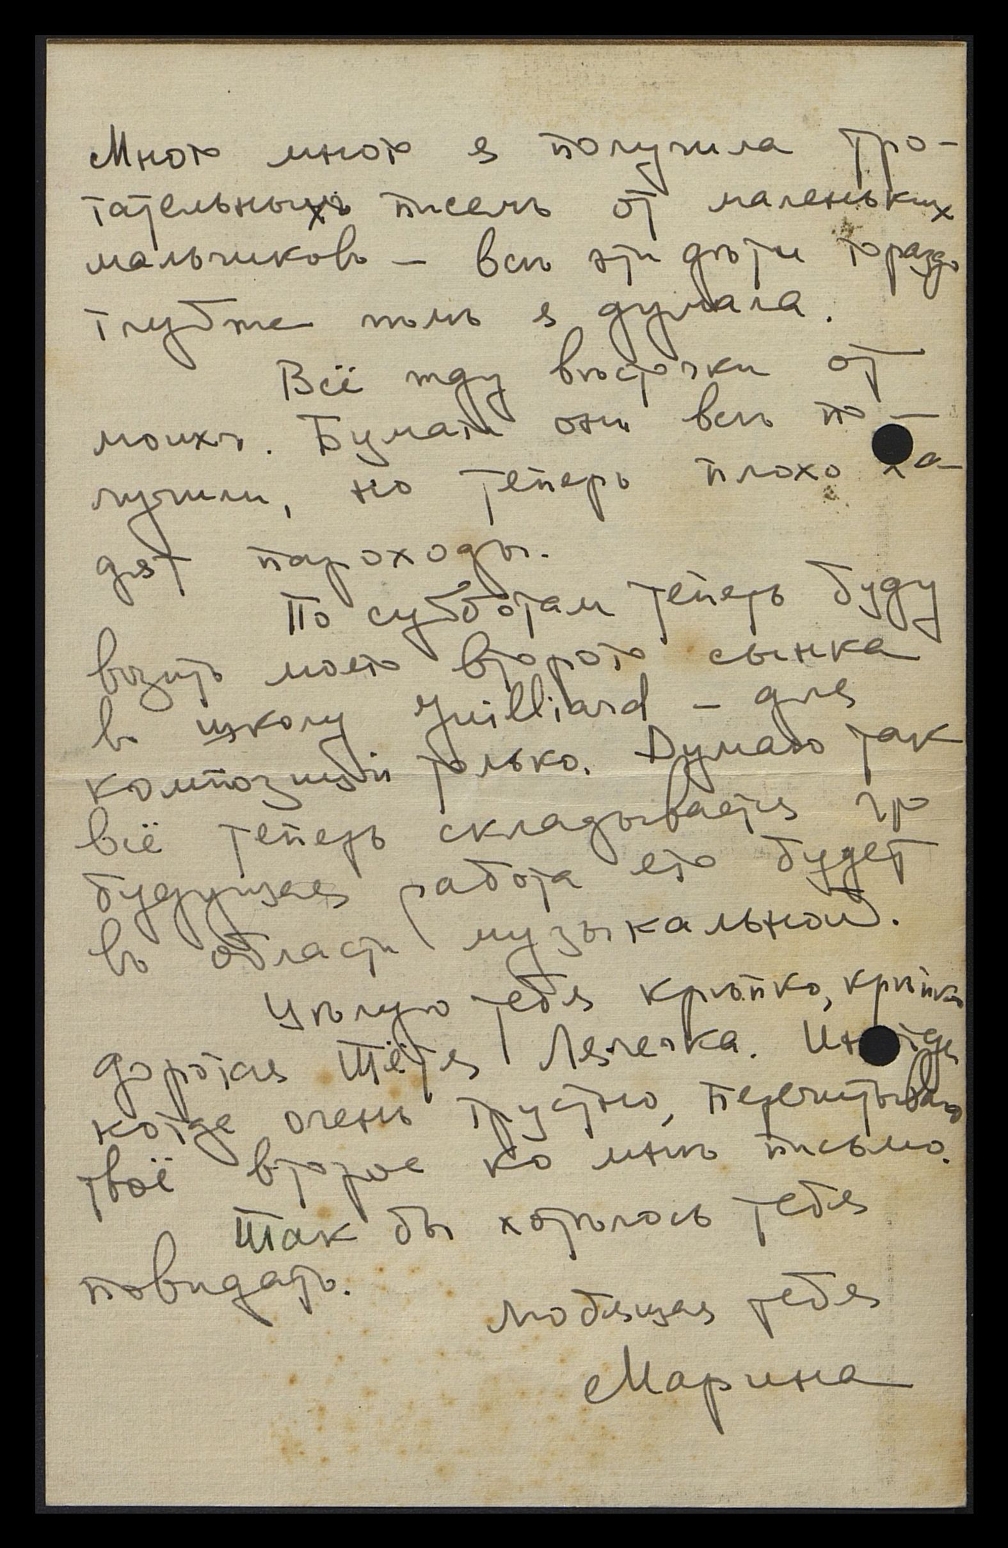 Много много я получила тро-
гательныхъ писемъ от маленьких
мальчиковъ – всѣ эти дѣти гораздо
глубже чѣмъ я думала.
Всё жду вѣсточки от
моихъ. Бумаги они всѣ по-
лучили, но теперь плохо хо-
дят пароходы.
По субботам теперь буду
возить моего второго сынка
в школу Juilliard – для
композиций только. Думаю так
всё теперь складывается что
будущая работа его будет
въ области музыкальной.
Цѣлую тебя крѣпко, крѣпко
дорогая Тётя Лелечка. Иногда
когда очень грустно, перечитываю
твоё второе ко мнѣ письмо.
Так бы хотѣлось тебя
повидать.
Любящая тебя
Марина